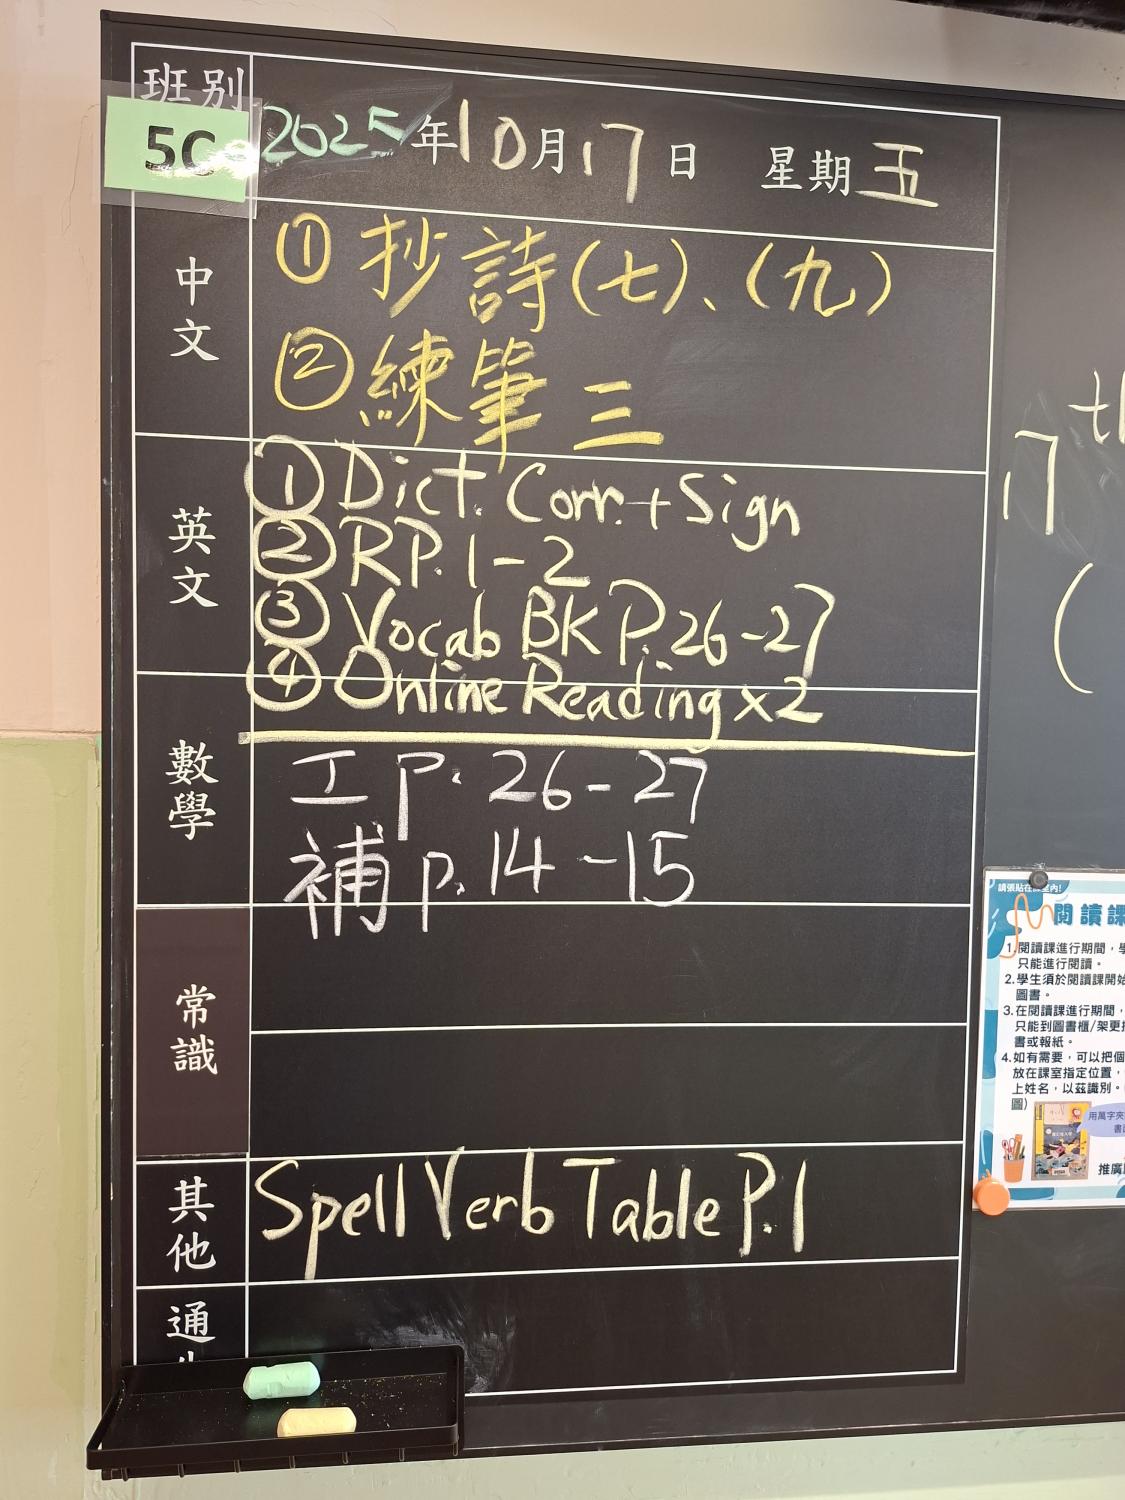 班別
5C
2025年10月17日 星期五
中文
① 抄詩(七)、(九)
② 練筆三
英文
① Dict. Corr. + Sign
② RP. 1-2
③ Vocab BK P. 26-27
④ Online Reading x2
數學
工 p. 26-27
補 p. 14-15
常識
其他
Spell Verb Table P.1
通
17
th
(
請張貼在課室內!
閱讀課
1.閱讀課進行期間,學
只能進行閱讀。
2.學生須於閱讀課開始
圖書。
3.在閱讀課進行期間,
只能到圖書櫃/架更
書或報紙。
4.如有需要,可以把個
放在課室指定位置,
上姓名,以茲識別。
圖)
用萬字夾
推廣